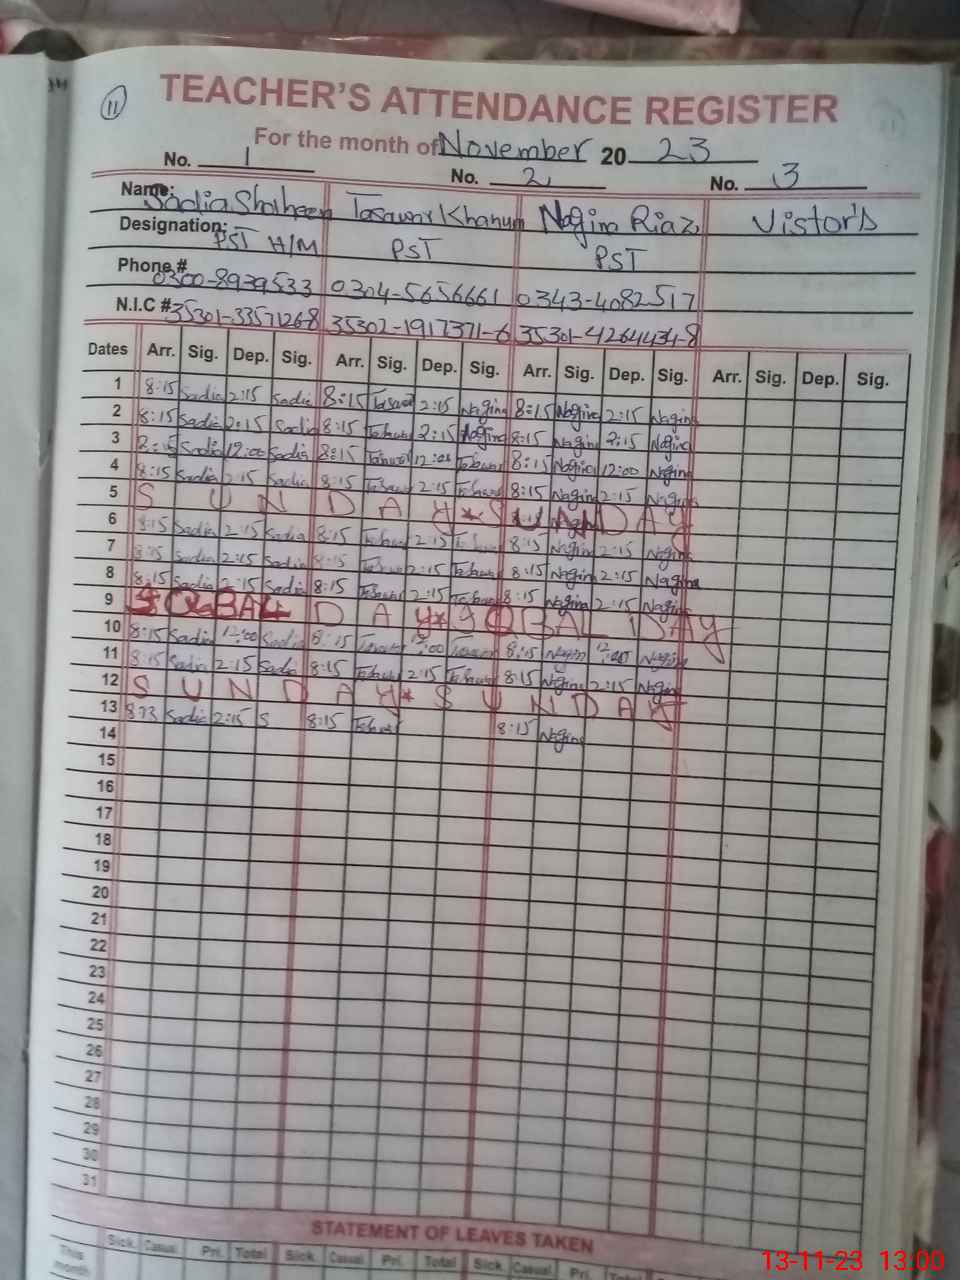 11
TEACHER'S ATTENDANCE REGISTER
For the month of November 20 23
No. 1 No. 2 No. 3
Name: Sadia Shaheen Tasawar Khanum Nagina Riaz Vistor's
Designation: PST H/M PST PST
Phone # 0300-8939533 0304-5656661 0343-4082517
N.I.C # 35301-3357126-8 35302-1917371-6 35301-4264434-8
Dates Arr. Sig. Dep. Sig. Arr. Sig. Dep. Sig. Arr. Sig. Dep. Sig. Arr. Sig. Dep. Sig.
1 8:15 Sadia 2:15 Sadia 8:15 Tasawar 2:15 Nagina 8:15 Nagina 2:15 Nagina
2 8:15 Sadia 2:15 Sadia 8:15 Tasawar 2:15 Nagina 8:15 Nagina 2:15 Nagina
3 Sadia 12:00 Sadia 8:15 Tasawar 12:00 Tasawar 8:15 Nagina 12:00 Nagina
4 8:15 Sadia 2:15 Sadia 8:15 Tasawar 2:15 Tasawar 8:15 Nagina 2:15 Nagina
5 S U N D A Y * S U N D A Y
6 8:15 Sadia 2:15 Sadia 8:15 Tasawar 2:15 Tasawar 8:15 Nagina 2:15 Nagina
7 8:15 Sadia 2:15 Sadia 8:15 Tasawar 2:15 Tasawar 8:15 Nagina 2:15 Nagina
8 8:15 Sadia 2:15 Sadia 8:15 Tasawar 2:15 Tasawar 8:15 Nagina 2:15 Nagina
9 IQBAL D A Y * IQBAL DAY
10 8:15 Sadia 12:00 Sadia 8:15 Tasawar 12:00 Tasawar 8:15 Nagina 12:00 Nagina
11 8:15 Sadia 2:15 Sadia 8:15 Tasawar 2:15 Tasawar 8:15 Nagina 2:15 Nagina
12 S U N D A Y * S U N D A Y
13 Sadia 2:15 S 8:15 Tasawar 8:15 Nagina
14
15
16
17
18
19
20
21
22
23
24
25
26
27
28
29
30
31
STATEMENT OF LEAVES TAKEN
This month Sick. Casual. Pri. Total Sick. Casual Pri. Total Sick. Casual Pri. Total
13-11-23 13:00